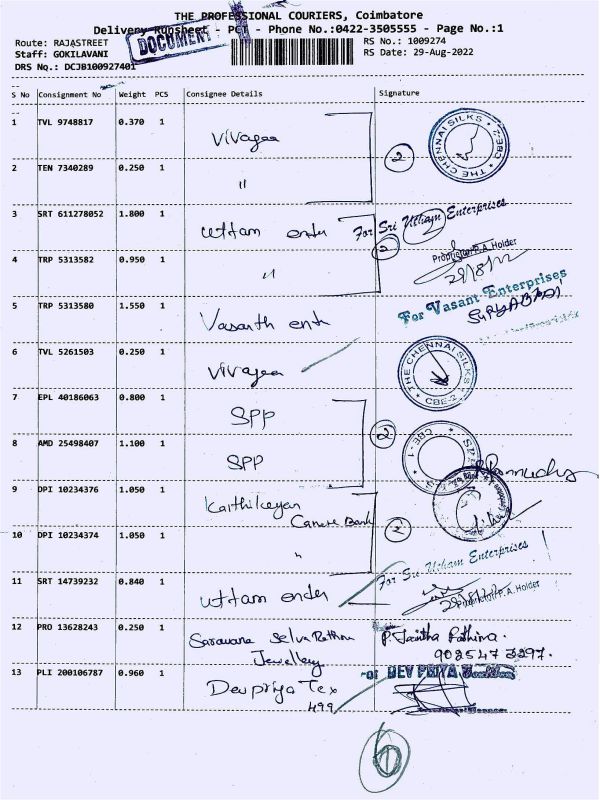 THE PROFESSIONAL COURIERS, Coimbatore
Delivery Runsheet - PCT - Phone No.:0422-3505555 - Page No.:1
DOCUMENT
Route: RAJASTREET
RS No.: 1009274
Staff: GOKILAVANI
RS Date: 29-Aug-2022
DRS No.: DCJB100927401
S No Consignment No Weight PCS Consignee Details Signature
1 TVL 9748817 0.370 1 Vivagaa
2 THE CHENNAI SILKS CBE-2
2 TEN 7340289 0.250 1 "
3 SRT 611278052 1.800 1 Uttam enter
2 For Sri Utham Enterprises
4 TRP 5313582 0.950 1 "
Proprietor/P.A. Holder
29/8/22
5 TRP 5313580 1.550 1 Vasanth ente
For Vasant Enterprises
6 TVL 5261503 0.250 1 Vivagaa
THE CHENNAI SILKS CBE-2
7 EPL 40186063 0.800 1 SPP
2 CBE-1
8 AMD 25498407 1.100 1 SPP
9 DPI 10234376 1.050 1 Karthikeyan
Canara Bank
2
10 DPI 10234374 1.050 1 "
For Sri Utham Enterprises
11 SRT 14739232 0.840 1 Uttam ender
Proprietor/P.A. Holder
12 PRO 13628243 0.250 1 Saravana Selva Rathna
Jewellery
P. Jaitha Fathima.
902547 3297.
13 PLI 200106787 0.960 1 Devpriya Tex
499
For DEV PRIYA
6